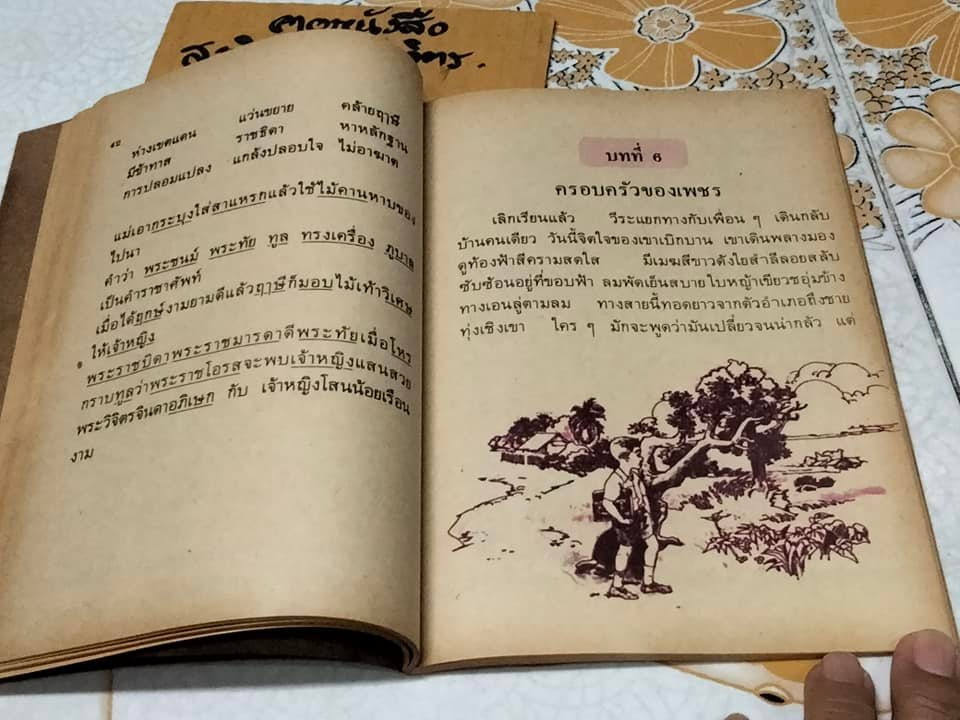 ฅอหนังสือ
๔๘
ห่างเขตแดน แว่นขยาย คล้ายฤๅษี
มีข้าทาส ราชธิดา หาหลักฐาน
การปลอมแปลง แกล้งปลอบใจ ไม่อาฆาต
แม่เอากระบุงใส่สาแหรกแล้วใช้ไม้คานหาบของ
ไปนา
คำว่า พระชนม์ พระทัย ทูล ทรงเครื่อง ภูบาล
เป็นคำราชาศัพท์
เมื่อได้ฤกษ์งามยามดีแล้วฤๅษีก็มอบไม้เท้าวิเศษ
ให้เจ้าหญิง
พระราชบิดาพระราชมารดาดีพระทัยเมื่อโหร
กราบทูลว่าพระราชโอรสจะพบเจ้าหญิงแสนสวย
พระวิจิตรจินดาอภิเษก กับ เจ้าหญิงโสนน้อยเรือน
งาม
บทที่ ๖
ครอบครัวของเพชร
เลิกเรียนแล้ว วีระแยกทางกับเพื่อน ๆ เดินกลับ
บ้านคนเดียว วันนี้จิตใจของเขาเบิกบาน เขาเดินพลางมอง
ดูท้องฟ้าสีครามสดใส มีเมฆสีขาวดังใยสำลีลอยสลับ
ซับซ้อนอยู่ที่ขอบฟ้า ลมพัดเย็นสบาย ใบหญ้าเขียวชอุ่มข้าง
ทางเอนลู่ตามลม ทางสายนี้ทอดยาวจากตัวอำเภอถึงชาย
ทุ่งเชิงเขา ใคร ๆ มักจะพูดว่ามันเปลี่ยวจนน่ากลัว แต่